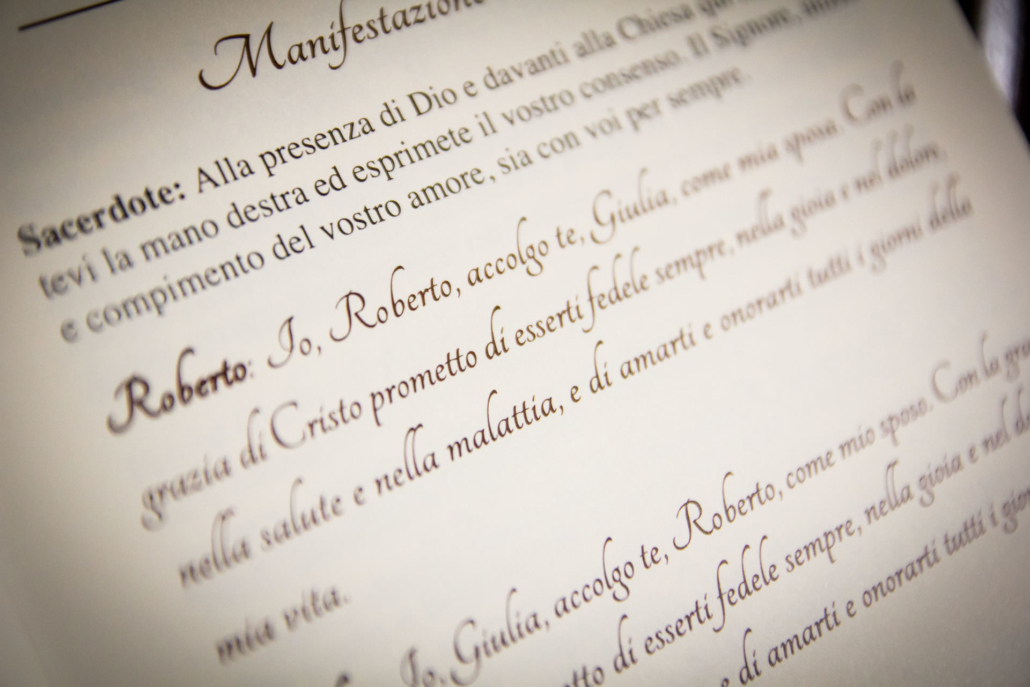 Manifestazione
Sacerdote: Alla presenza di Dio e davanti alla Chiesa qui
tevi la mano destra ed esprimete il vostro consenso. Il Signore,
e compimento del vostro amore, sia con voi per sempre.
Roberto: Io, Roberto, accolgo te, Giulia, come mia sposa. Con la
grazia di Cristo prometto di esserti fedele sempre, nella gioia e nel dolore,
nella salute e nella malattia, e di amarti e onorarti tutti i giorni della
mia vita.
Io, Giulia, accolgo te, Roberto, come mio sposo. Con la
di esserti fedele sempre, nella gioia e nel
e di amarti e onorarti tutti i